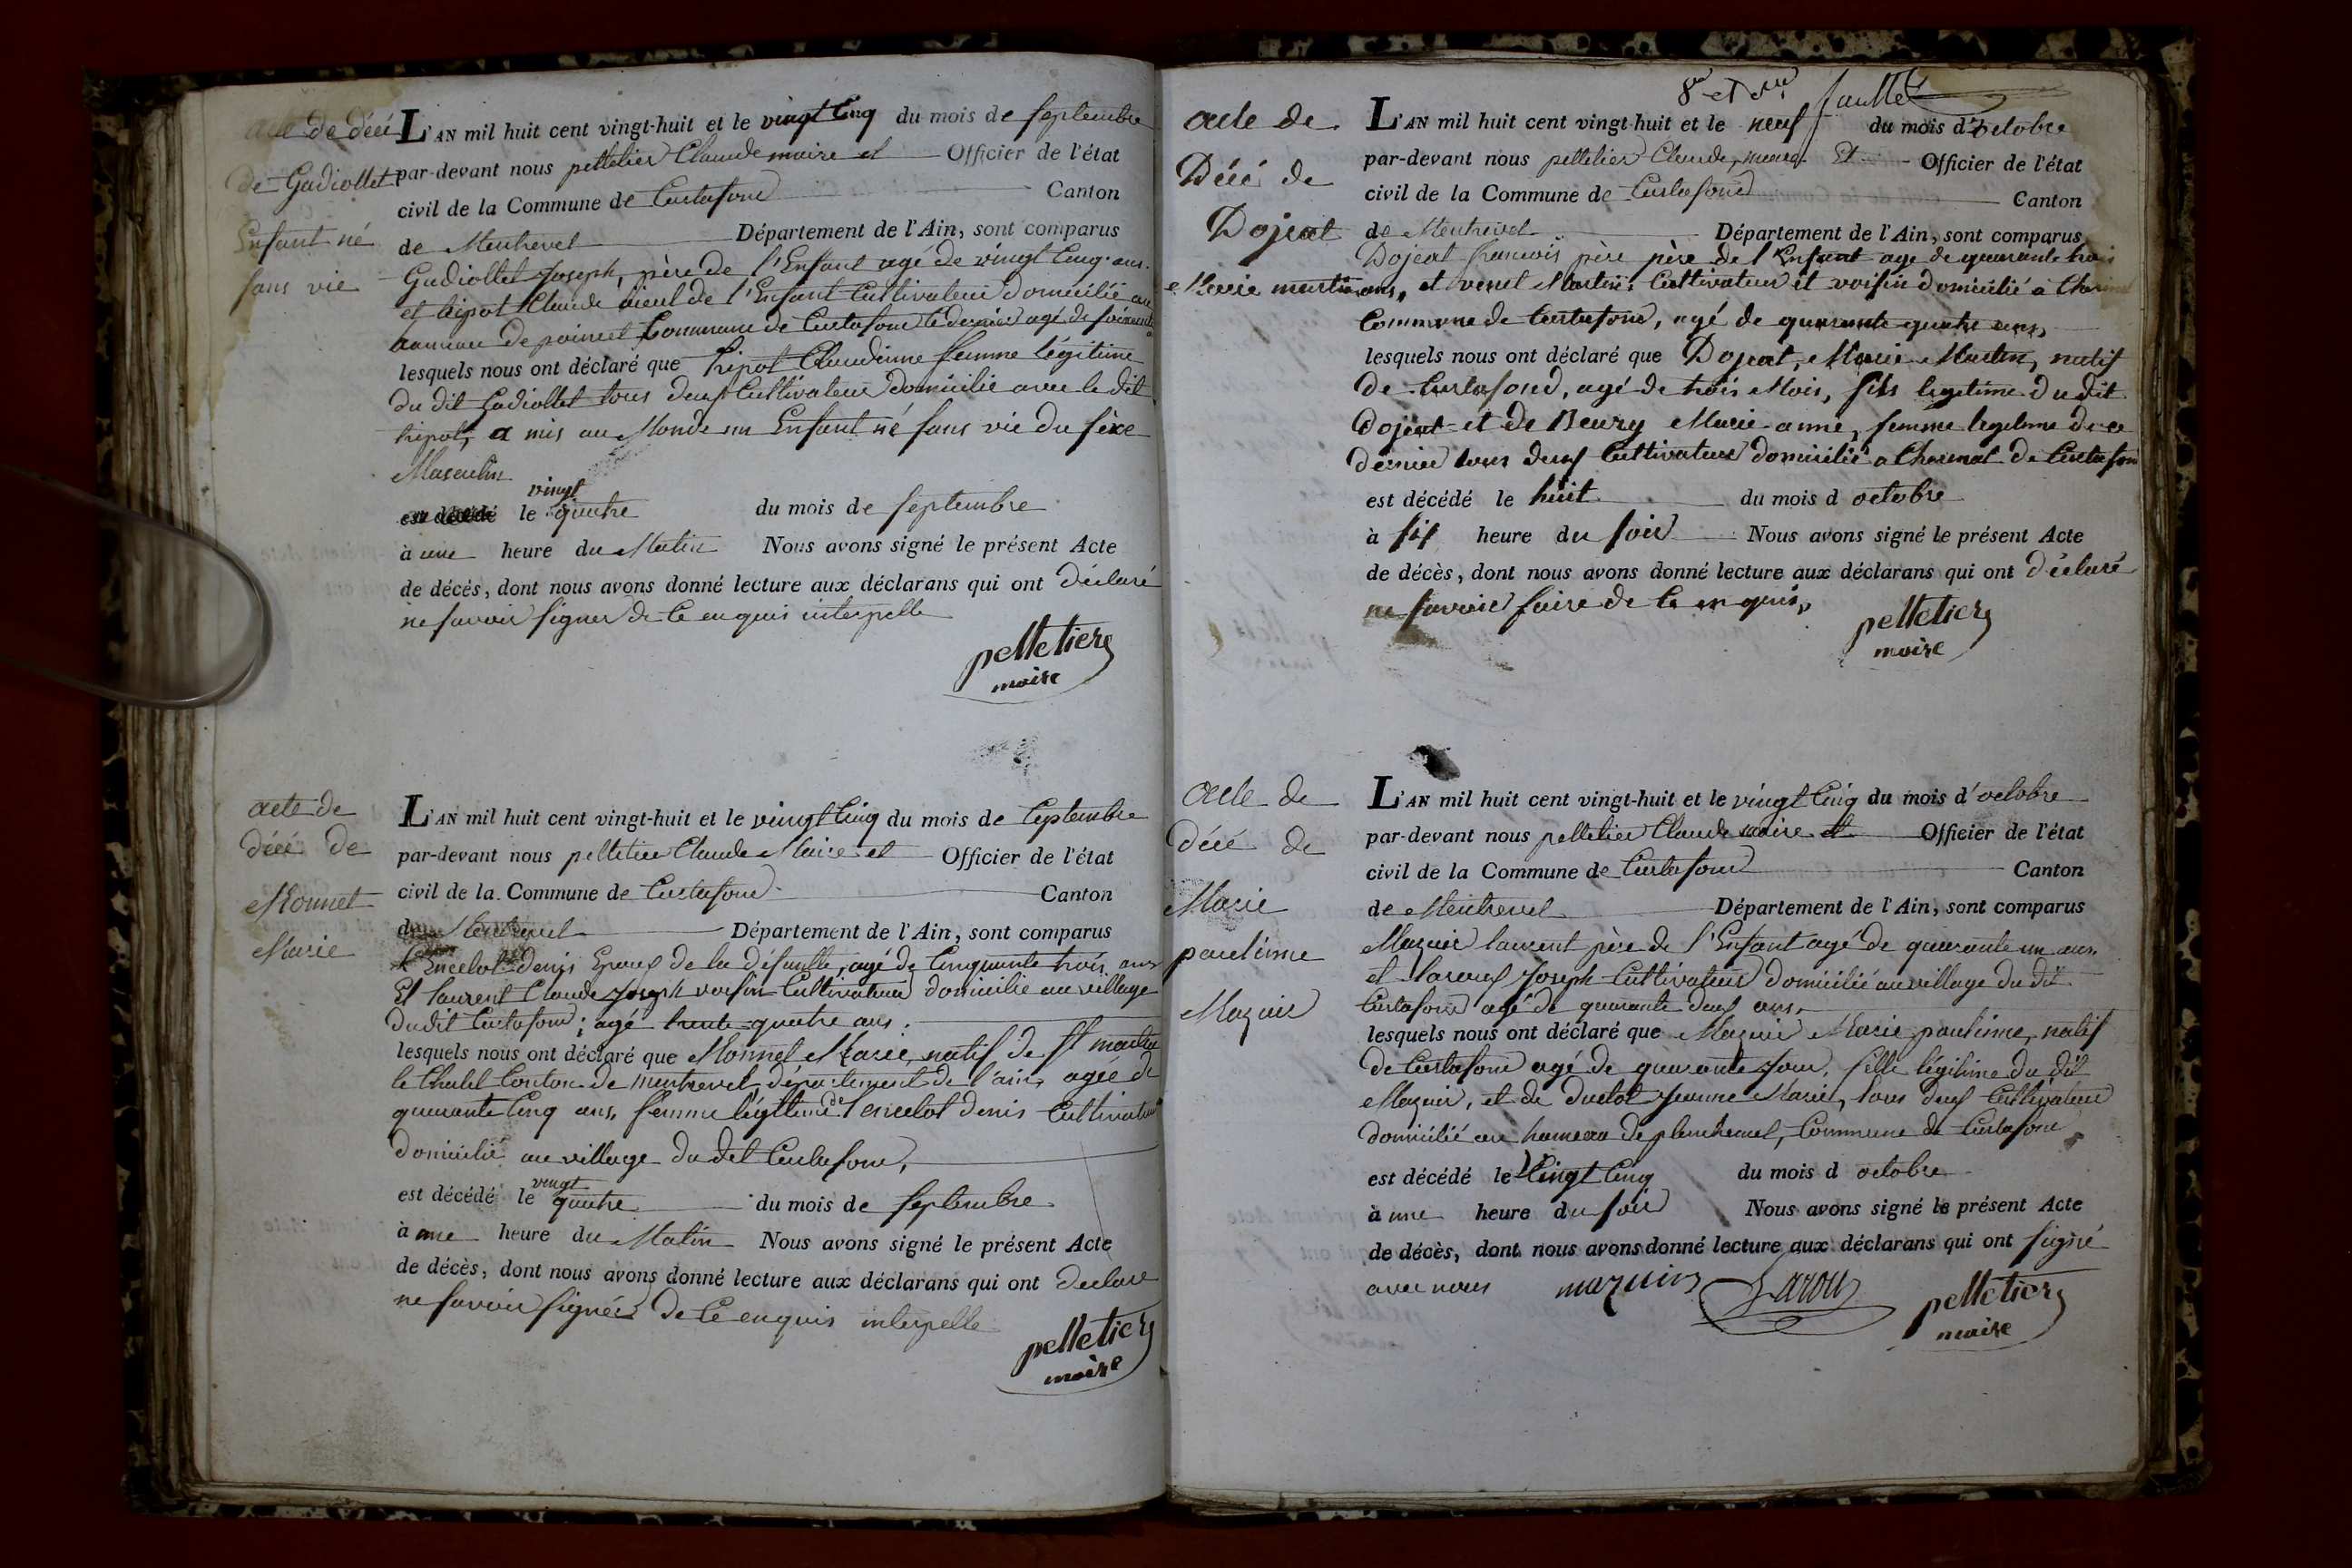 acte de décé
de Gadiollet
Enfant né
sans vie
L'AN mil huit cent vingt-huit et le vingt Cinq du mois de septembre
par-devant nous pelletier Claude maire et Officier de l'état
civil de la Commune de Curtafond Canton
de Montrevel Département de l'Ain, sont comparus
Gadiollet Joseph, père de l'Enfant agé de vingt Cinq ans.
et tripot Claude aieul de l'Enfant Cultivateur domicilié au
hameau de Commune de Curtafond le dernier agé de soixante
lesquels nous ont déclaré que tripot Claudinne femme légitime
du dit Gadiollet tous deux Cultivateur domicilié avec le dit
tripot, a mis au Monde un Enfant né sans vie du sèxe
Masculin
est décédé le vingt quatre du mois de septembre
à une heure du Matin Nous avons signé le présent Acte
de décès, dont nous avons donné lecture aux déclarans qui ont déclaré
ne savoir signer de Ce enquis interpelle
pelletier
maire
acte de
décé de
Monnet
Marie
L'AN mil huit cent vingt-huit et le vingt Cinq du mois de Ceptembre
par-devant nous pelletier Claude Maire et Officier de l'état
civil de la Commune de Curtafond Canton
de Montrevel Département de l'Ain, sont comparus
Lencelot denis Epoux de la défunte, agé de Cinquante trois ans
Et laurent Claude Joseph voisin Cultivateur domicilié au village
dudit Curtafond; agé trente quatre ans.
lesquels nous ont déclaré que Monnet Marie, natif de st martin
le Chatel Canton de montrevel département de l'ain, agée de
quarante Cinq ans, femme légitime de lencelot denis Cultivateur
domicilié au village du dit Curtafond,
est décédé le vingt quatre du mois de septembre
à une heure du Matin Nous avons signé le présent Acte
de décès, dont nous avons donné lecture aux déclarans qui ont declaré
ne savoir signer de Ce enquis interpelle
pelletier
maire
acte de
Décé de
Dojeat
Marie martin
L'AN mil huit cent vingt-huit et le neuf du mois d'octobre
par-devant nous pelletier Claude, maire Et Officier de l'état
civil de la Commune de Curtafond Canton
de Montrevel Département de l'Ain, sont comparus
Dojeat francois père père de l'Enfant age de quarante trois
ans, et venet Martin, Cultivateur et voisin domicilié à
Commune de Curtafond, agé de quarante quatre ans,
lesquels nous ont déclaré que Dojeat, Marie Martin, natif
de Curtafond, agé de trois Mois, fils legitime du dit
Dojeat et de Beury Marie anne, femme legitime de ce
dernier tous deux Cultivateur domicilié a Charmat de Curtafon
est décédé le huit du mois d octobre
à six heure du soir Nous avons signé le présent Acte
de décès, dont nous avons donné lecture aux déclarans qui ont déclaré
ne savoir faire de Ce enquis,
pelletier
maire
acte de
décé de
Marie
paulinne
Mazuir
L'AN mil huit cent vingt-huit et le vingt Cinq du mois d'octobre
par-devant nous pelletier Claude maire et Officier de l'état
civil de la Commune de Curtafond Canton
de Montrevel Département de l'Ain, sont comparus
Mazuir laurent père de l'Enfant agé de quarante un ans.
et Joseph Cultivateur domicilié au village du dit
Curtafond agé de quarante deux ans,
lesquels nous ont déclaré que Mazuir Marie paulinne, natif
de Curtafond agé de quarante Jour, fille légitime du dit
Mazuir, et de Duclot Jeanne Marie, tous deux Cultivateur
domicilié au hameau de Commune de Curtafond
est décédé le Vingt Cinq du mois d octobre
à une heure du soir Nous avons signé le présent Acte
de décès, dont nous avons donné lecture aux déclarans qui ont signé
avec nous mazuir pelletier
maire